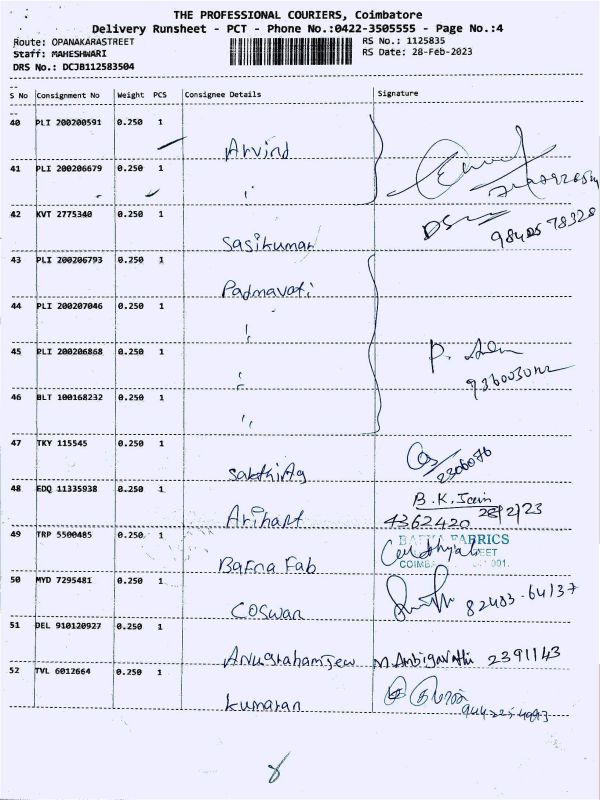 THE PROFESSIONAL COURIERS, Coimbatore
Delivery Runsheet - PCT - Phone No.:0422-3505555 - Page No.:4
Route: OPANAKARASTREET
RS No.: 1125835
Staff: MAHESHWARI
RS Date: 28-Feb-2023
DRS No.: DCJB112583504
S No Consignment No Weight PCS Consignee Details Signature
40 PLI 200200591 0.250 1
Arvind
41 PLI 200206679 0.250 1
"
42 KVT 2775340 0.250 1
Sasikumar
43 PLI 200206793 0.250 1
Padmavati
44 PLI 200207046 0.250 1
"
45 PLI 200206868 0.250 1
"
46 BLT 100168232 0.250 1
"
47 TKY 115545 0.250 1
SakthiAg 2306076
48 EDQ 11335938 0.250 1
B.K.Jain
Arihant 4362420 28/2/23
49 TRP 5500485 0.250 1
FABRICS
Bafna Fab
50 MYD 7295481 0.250 1
Coswan 82483-64137
51 DEL 910120927 0.250 1
Anugrahamjew 2391143
52 TVL 6012664 0.250 1
Kumaran